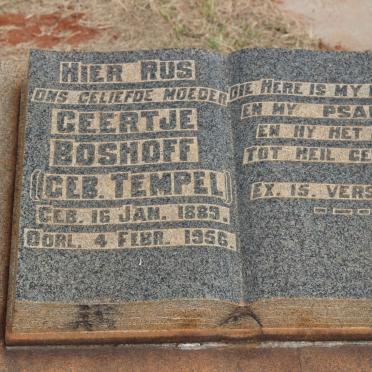 HIER RUS
ONS GELIEFDE MOEDER
GEERTJE
BOSHOFF
(GEB. TEMPEL)
GEB. 16 JAN. 1889.
OORL. 4 FEBR. 1956.
DIE HERE IS MY
EN MY PSA
EN HY HET
TOT HEIL GE
EX. 15. VERS